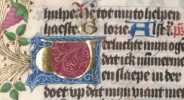 hulpe He tot mīre helpen
haeste glorie Alst ps
erlucht mijn oge
dat ick nūmerme
en slaepe in der
doet op dat mijn vian